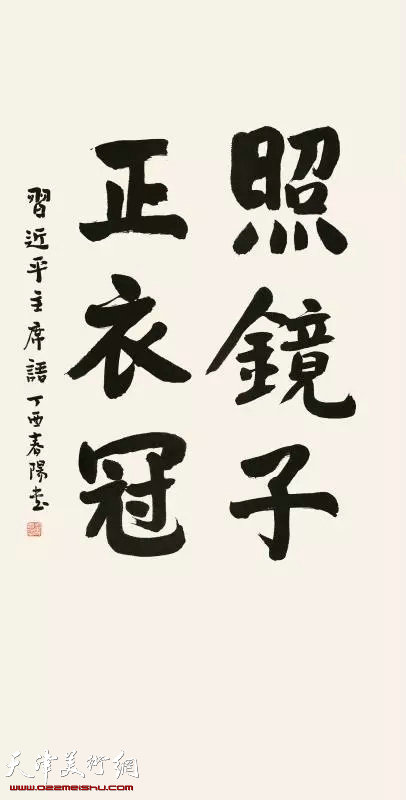 照鏡子
正衣冠
習近平主席語 丁酉春陽書
天津美術網
www.022meishu.com